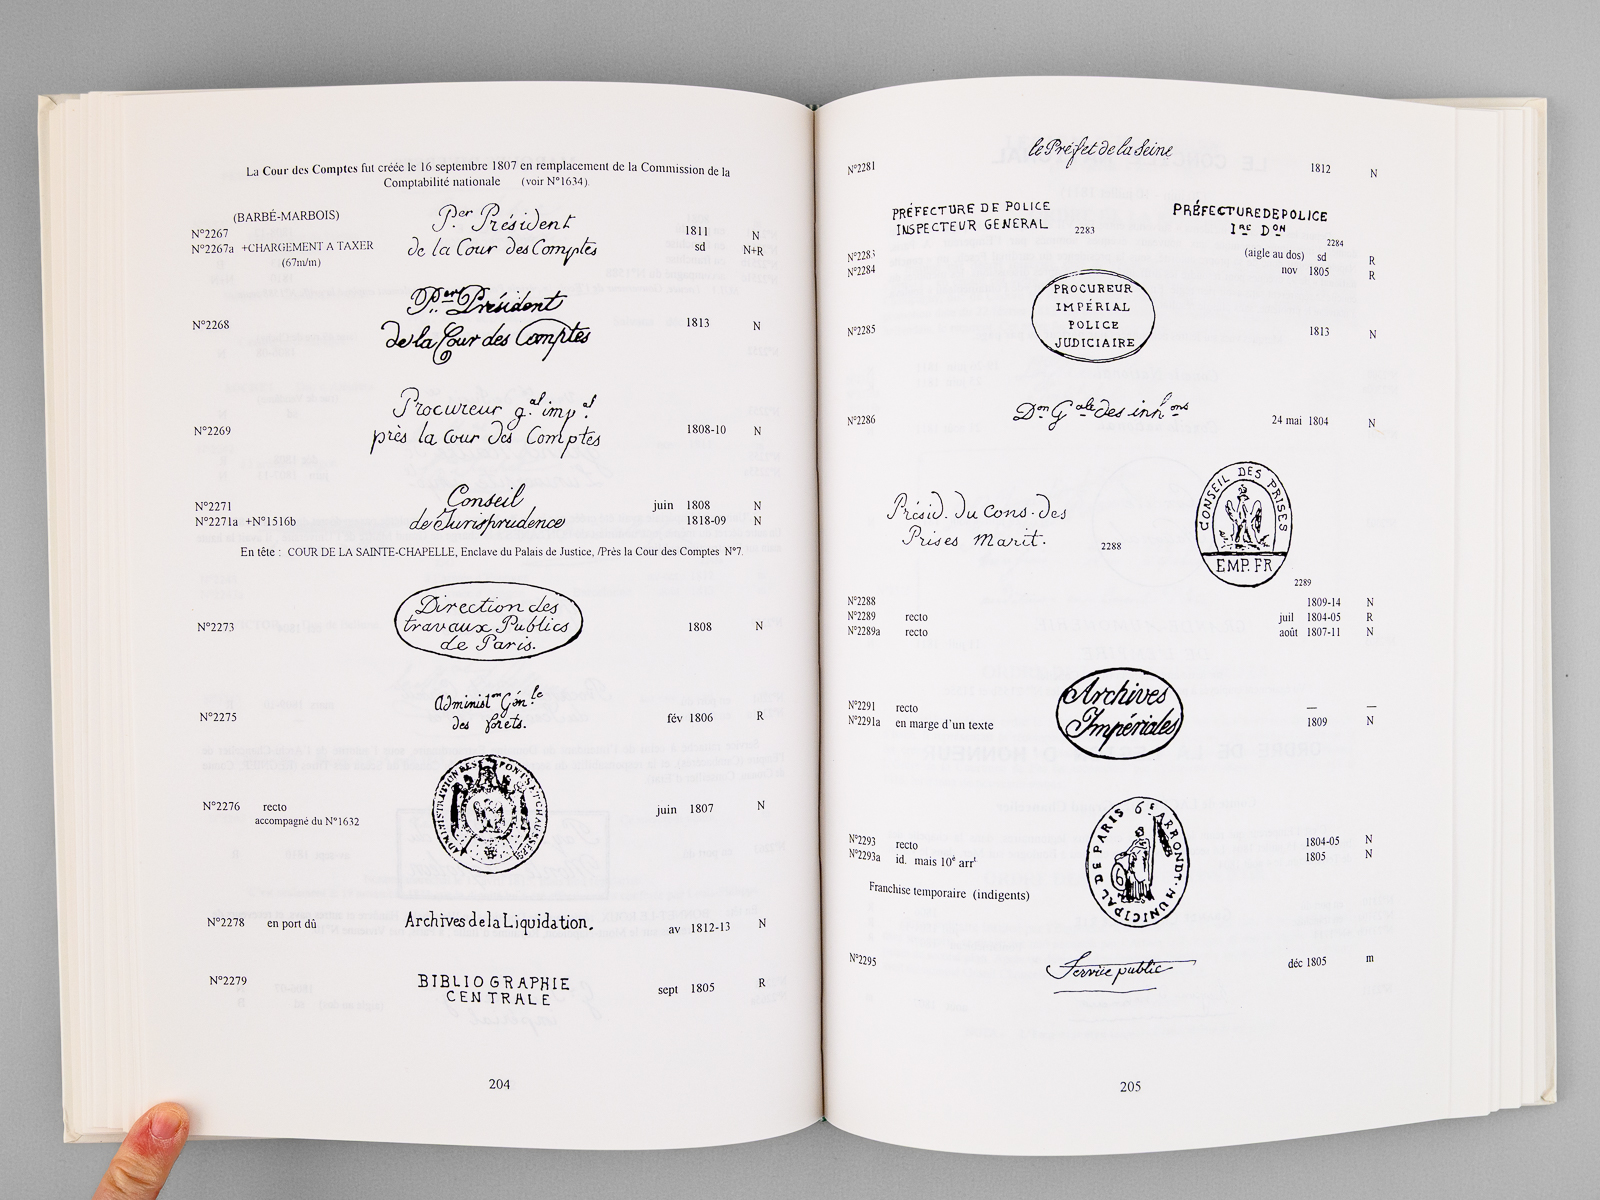 La Cour des Comptes fut créée le 16 septembre 1807 en remplacement de la Commission de la
Comptabilité nationale (voir N°1634).
(BARBÉ-MARBOIS)
Per Président
de la Cour des Comptes
N°2267 1811 N
N°2267a +CHARGEMENT A TAXER sd N+R
(67m/m)
Pert Président
de la Cour des Comptes
N°2268 1813 N
Procureur g.al imp.al
près la Cour des Comptes
N°2269 1808-10 N
Conseil
de Jurisprudence
N°2271 juin 1808 N
N°2271a +N°1516b 1818-09 N
En tête : COUR DE LA SAINTE-CHAPELLE, Enclave du Palais de Justice, /Près la Cour des Comptes N°7.
Direction des
travaux Publics
de Paris.
N°2273 1808 N
Administon Gén.le
des forets.
N°2275 fév 1806 R
ADMINISTRATION DES PONTS ET CHAUSSÉES
N°2276 recto juin 1807 N
accompagné du N°1632
N°2278 en port dû Archives de la Liquidation. av 1812-13 N
N°2279 BIBLIOGRAPHIE
CENTRALE sept 1805 R
204
le Préfet de la Seine
N°2281 1812 N
PRÉFECTURE DE POLICE
INSPECTEUR GENERAL 2283
PRÉFECTURE DE POLICE
1RE DON
2284
N°2283 (aigle au dos) sd R
N°2284 nov 1805 R
PROCUREUR
IMPÉRIAL
POLICE
JUDICIAIRE
N°2285 1813 N
Don Gale des inhons
N°2286 24 mai 1804 N
Présid. du Cons. des
Prises Marit. 2288
CONSEIL DES PRISES
EMP. FR
2289
N°2288 1809-14 N
N°2289 recto juil 1804-05 R
N°2289a recto août 1807-11 N
Archives
Impériales
N°2291 recto — —
N°2291a en marge d'un texte 1809 N
6E ARRONDT. MUNICIPAL DE PARIS
6
N°2293 recto 1804-05 N
N°2293a id. mais 10e arrt 1805 N
Franchise temporaire (indigents)
N°2295 Service public déc 1805 m
205